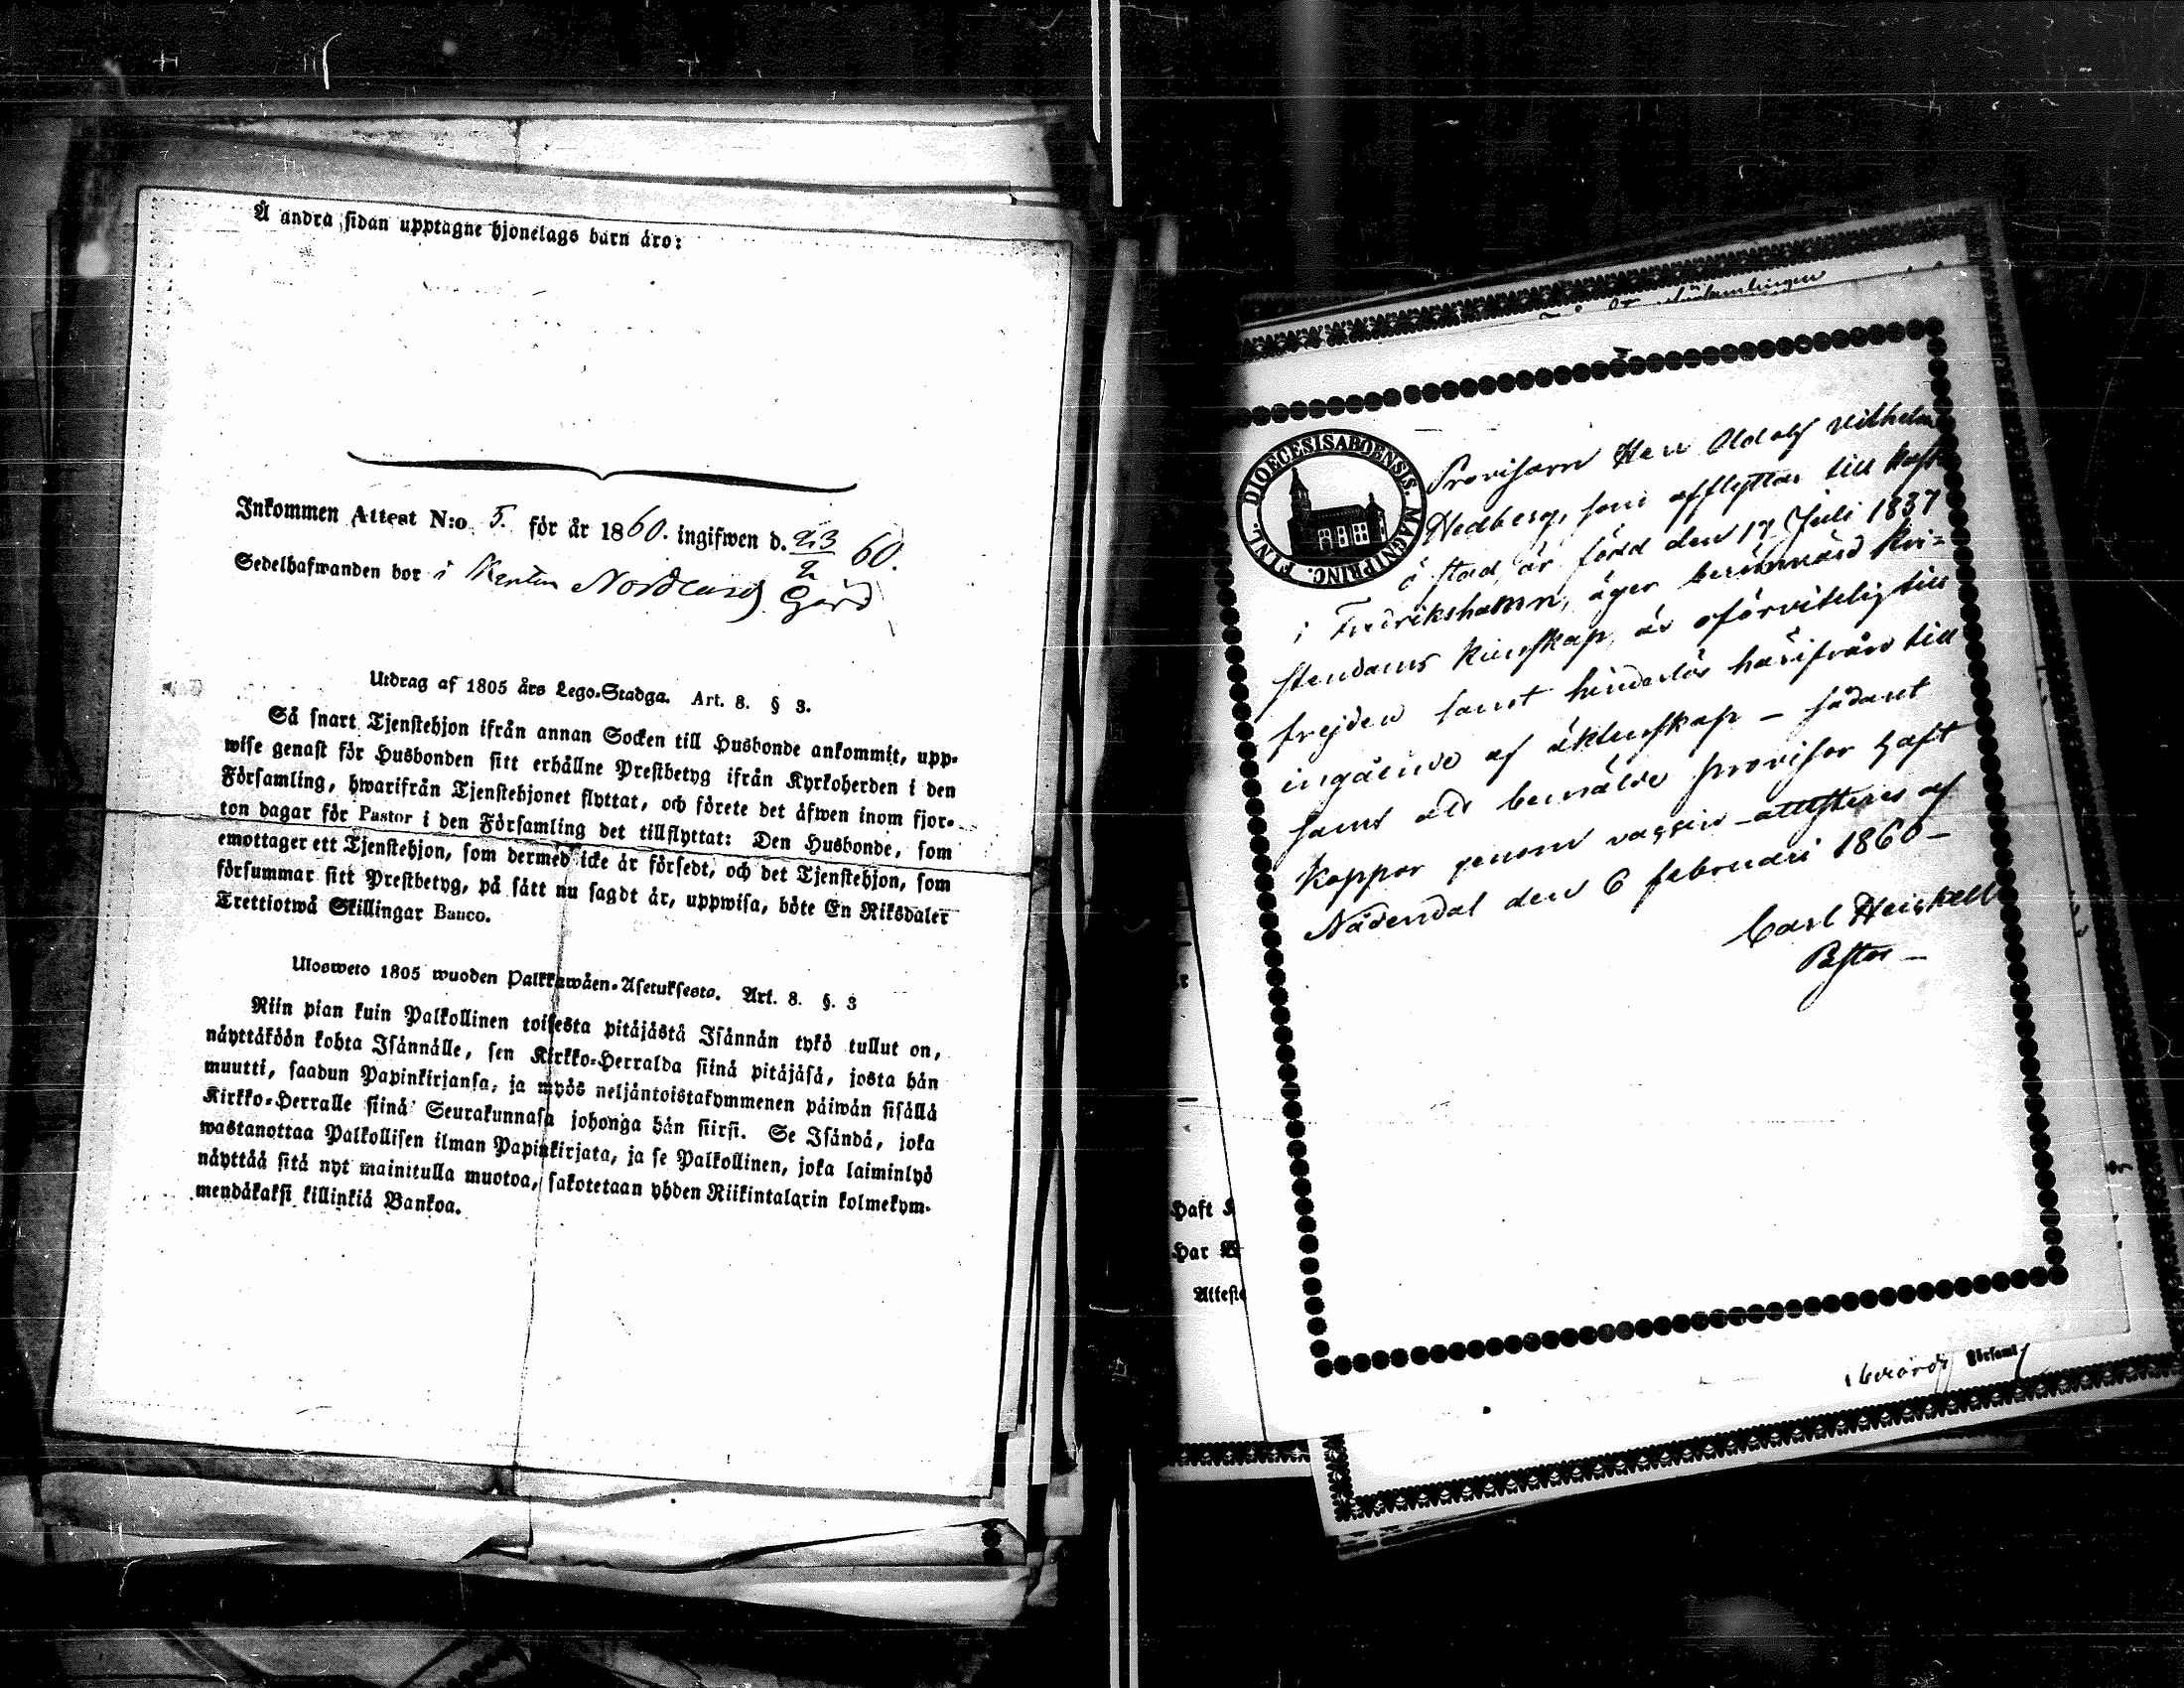 Å andra sidan upptagne hjonelags barn äro:
Inkommen Attest N:o 5. för år 1860. ingifwen d. 23/2 60.
Sedelhafwanden bor i Nordlunds Gård
Utdrag af 1805 års Lego-Stadga. Art. 8. § 3.
Så snart Tjenstehjon ifrån annan Socken till Husbonde ankommit, upp-
wise genast för Husbonden sitt erhållne Prestbetyg ifrån Kyrkoherden i den
Församling, hwarifrån Tjenstehjonet flyttat, och förete det äfwen inom fjor-
ton dagar för Pastor i den Församling det tillflyttat: Den Husbonde, som
emottager ett Tjenstehjon, som dermed icke är försedt, och det Tjenstehjon, som
försummar sitt Prestbetyg, på sätt nu sagdt är, uppwisa, böte En Riksdaler
Trettiotwå Skillingar Banco.
Ulosweto 1805 wuoden Palkkawäen-Asetuksesta. Art. 8. §. 3
Niin pian kuin Palkollinen toisesta pitäjästä Isännän tykö tullut on,
näyttäköön kohta Isännälle, sen Kirkko-Herralda siinä pitäjäsä, josta hän
muutti, saadun Papinkirjansa, ja myös neljäntoistakymmenen päiwän sisällä
Kirkko-Herralle siinä Seurakunnasa johonga hän siirsi. Se Isändä, joka
wastanottaa Palkollisen ilman Papinkirjata, ja se Palkollinen, joka laiminlyö
näyttää sitä nyt mainitulla muotoa, sakotetaan yhden Riikintalarin kolmekym-
mendäkaksi killinkiä Bankoa.
DIOECESIS ABOENSIS. MAGNI PRINC. FINL.
Provisorn Herr Adolf Vilhelm
Hedberg, som afflyttar till
stad, är född den 17 Juli 1837
i Fredrikshamn, äger berömvärd kri-
stendoms kunskap, är oförvitelig till
frejden samt hinderlös härifrån till
ingående af äktenskap – sådant
samt att bemälde provisor haft
koppor genom vaccin – attesteras af
Nådendal den 6 februari 1860 –
Carl Heickell
Pastor –
Haft
Har
Atteste
Församl